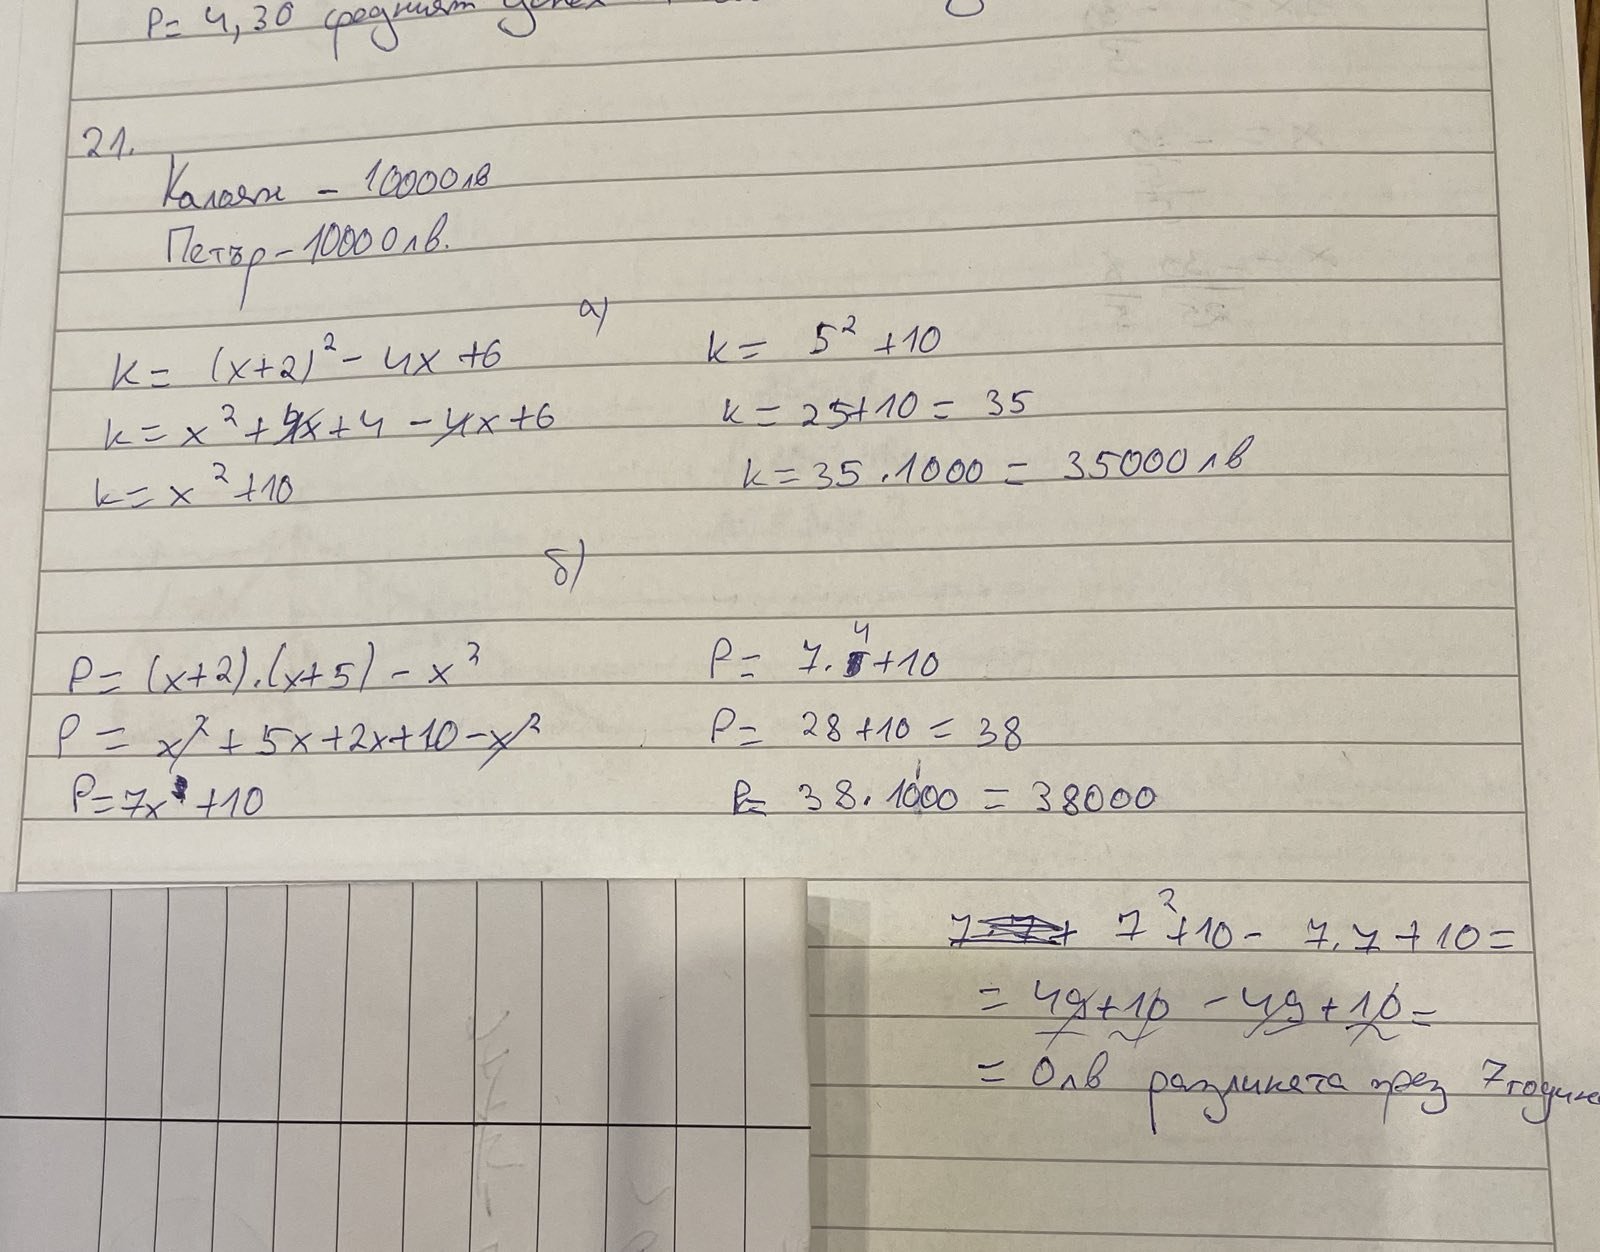 P = 4,30 средният успех
21.
Калоян – 10000лв
Петър – 10000лв.
а)
k = (x+2)² – 4x + 6
k = x² + 4x + 4 – 4x + 6
k = x² + 10
k = 5² + 10
k = 25 + 10 = 35
k = 35 . 1000 = 35000лв
б)
P = (x+2).(x+5) – x²
P = x² + 5x + 2x + 10 – x²
P = 7x + 10
P = 7.4 + 10
P = 28 + 10 = 38
P = 38 . 1000 = 38000
7² + 10 – 7.7 + 10 =
= 49 + 10 – 49 + 10 =
= 0лв разликата през 7 годин